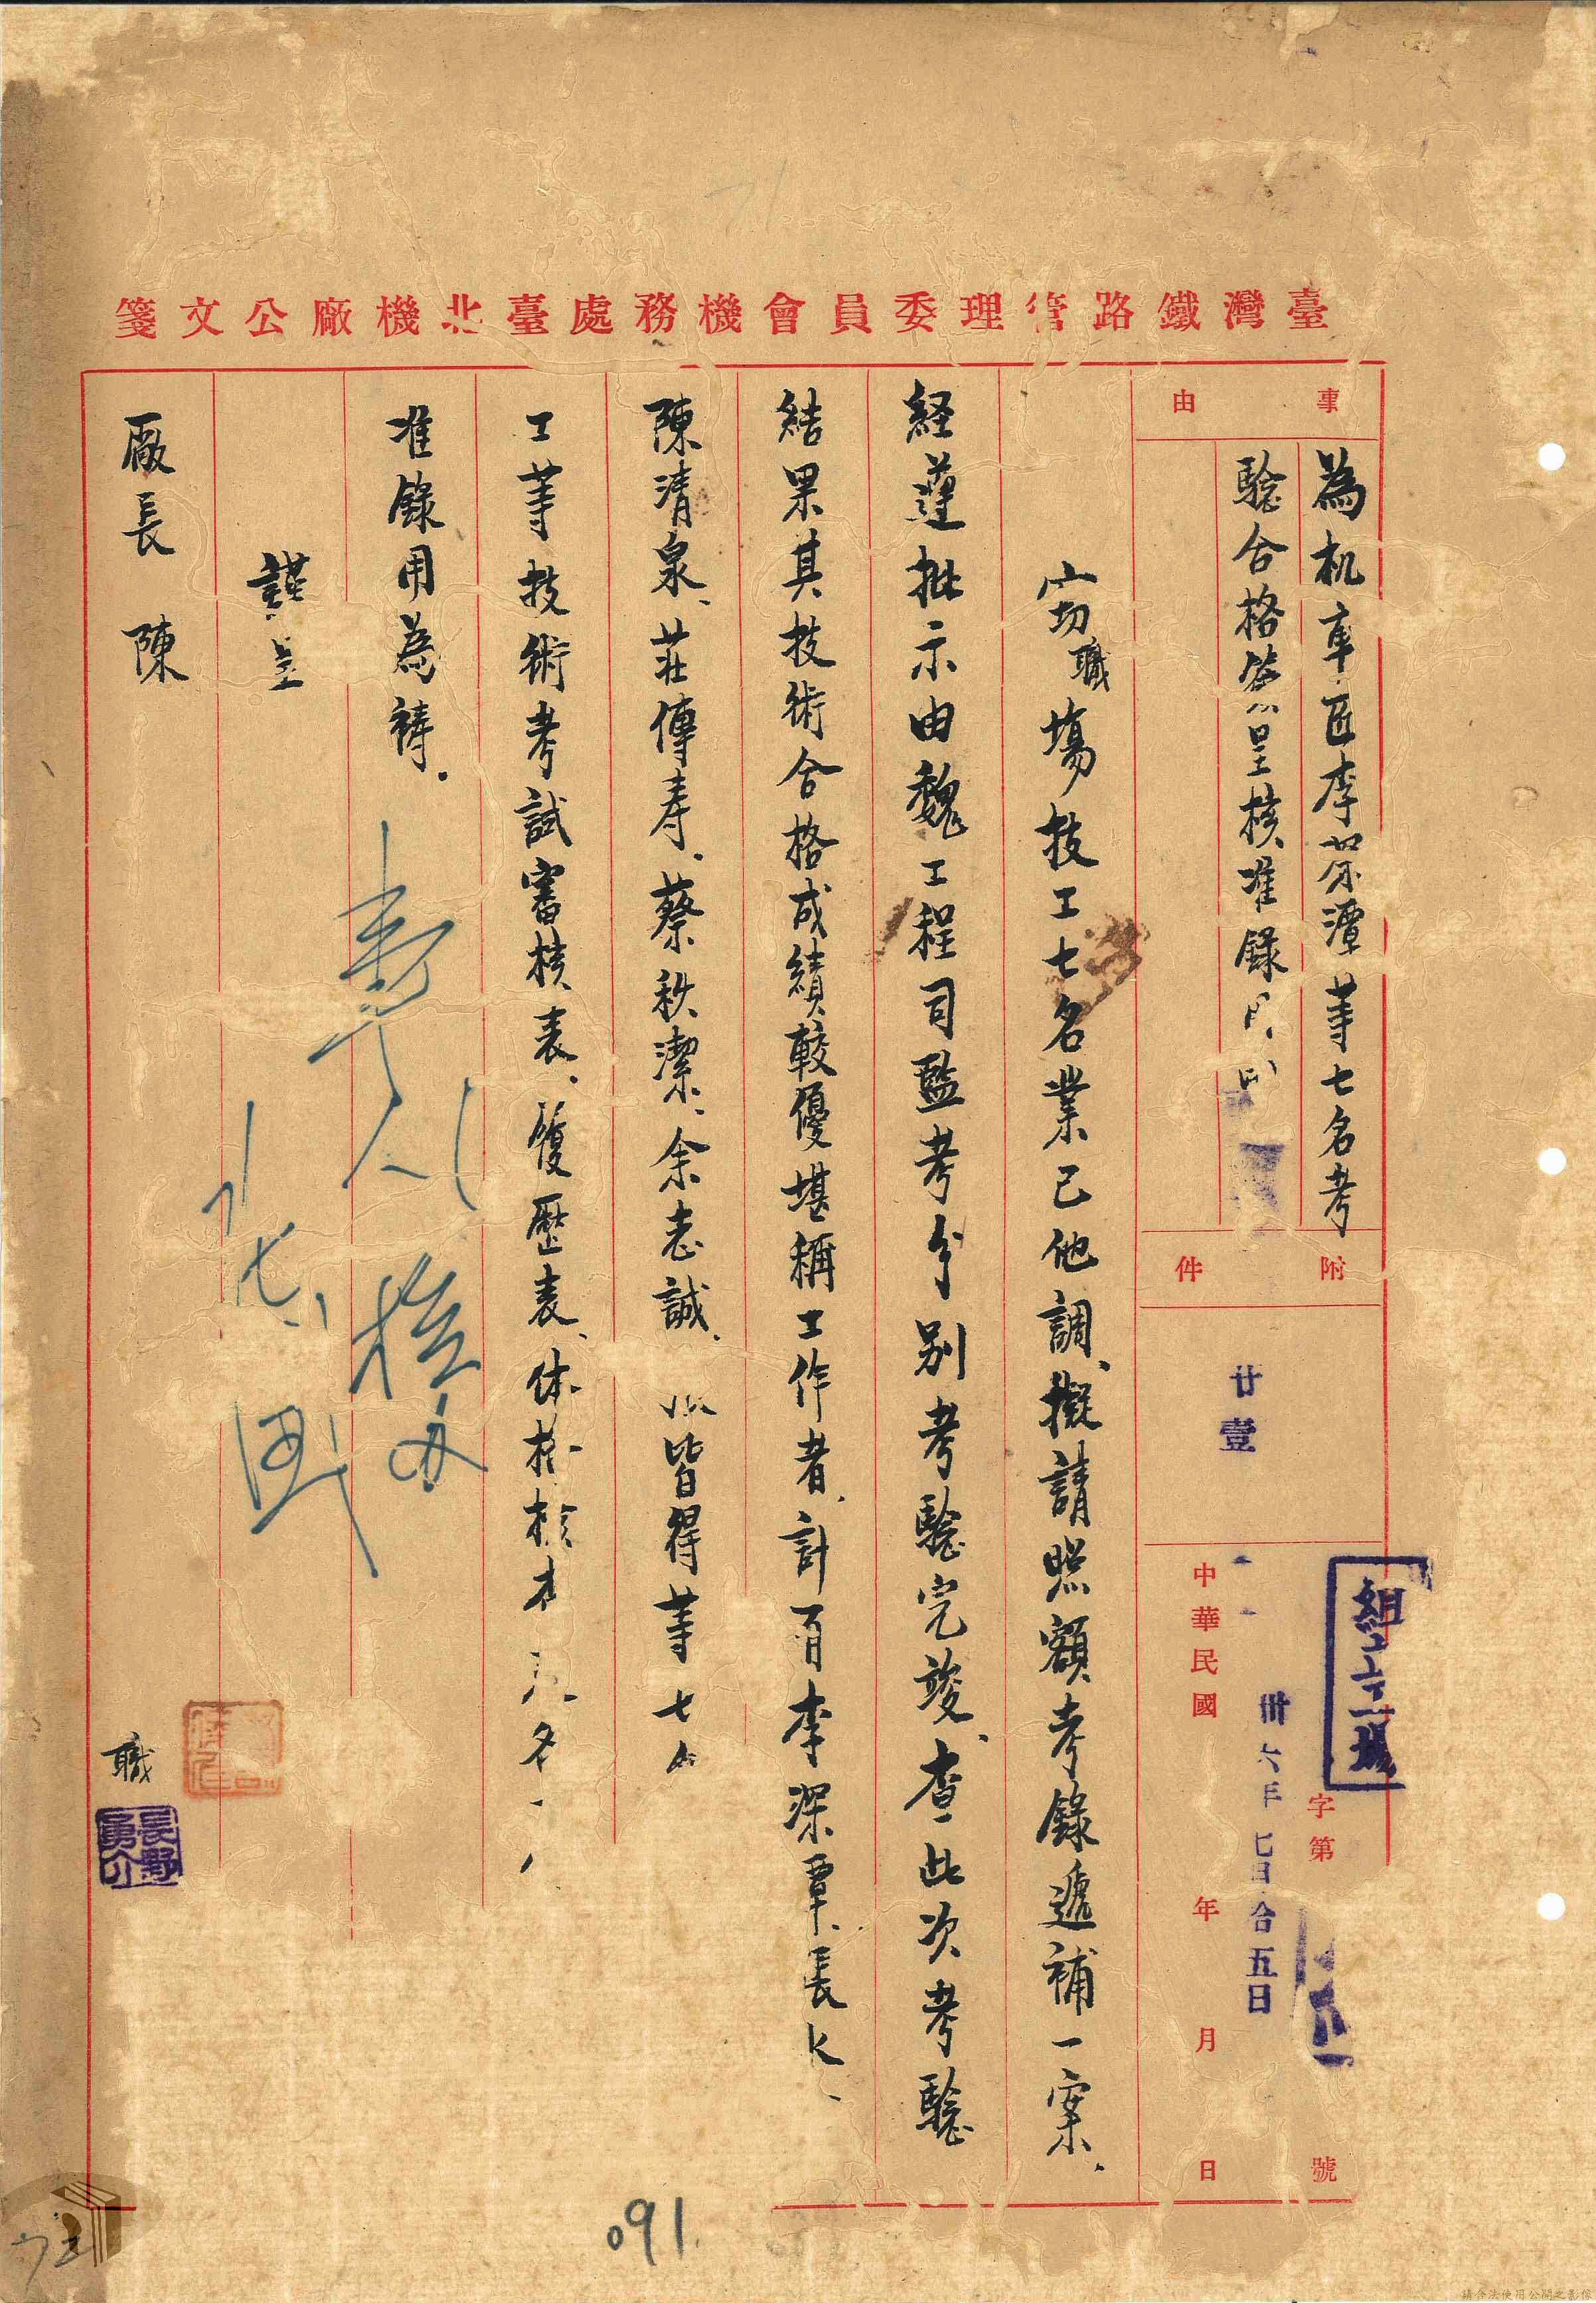 臺灣鐵路管理委員會機務處臺北機廠公文箋
事由
為机車匠李深潭等七名考
驗合格簽呈核准錄用由
附件
廿壹
組立場
字第
號
中華民國 年 月 日
卅六年七月合五日
窃職場技工七名業已他調、擬請照額考錄遞補一案、
経遵批示由魏工程司監考分別考驗完竣、查此次考驗
結果其技術合格成績較優堪稱工作者、計有李深覃、長
陳清泉、莊傳寿、蔡秋潔、余志誠、 皆得等七名
工等技術考試審核表、履歷表、体格檢查 名
准錄用為禱.
謹呈
廠長 陳
職
長野勇介
091
請合法使用公開之影像